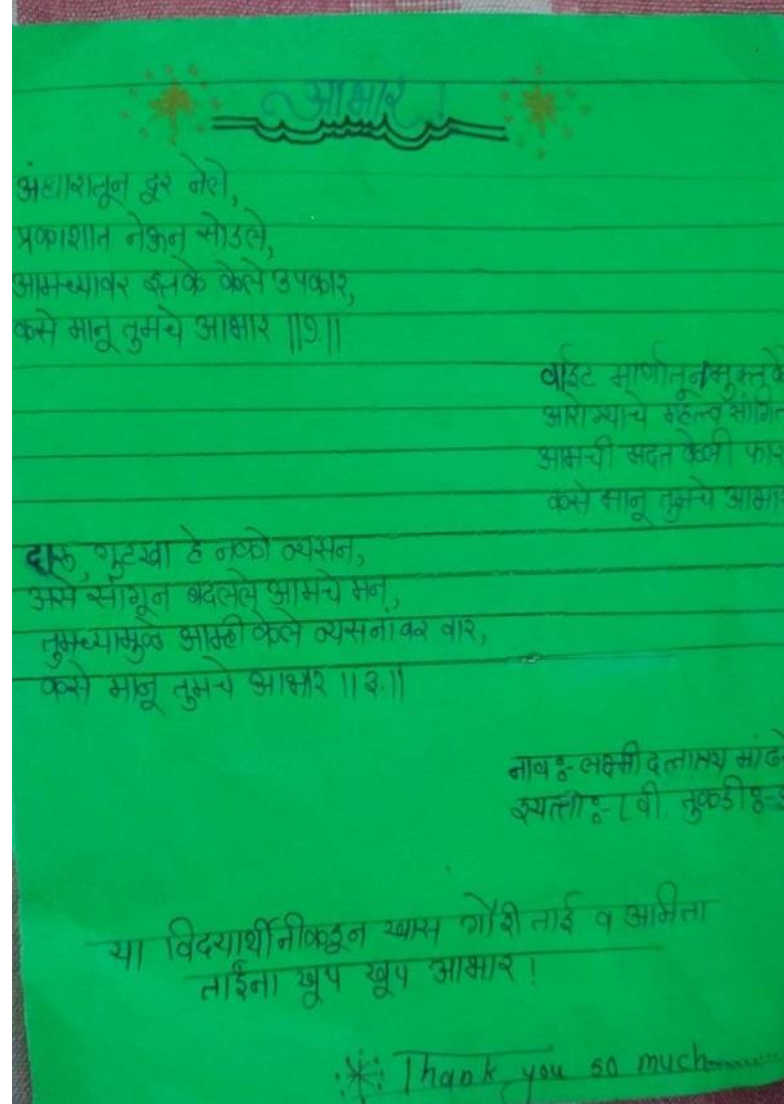 आभार !
अंधारातून दूर नेले,
प्रकाशात नेऊन सोडले,
आमच्यावर इतके केले उपकार,
कसे मानू तुमचे आभार ||१.||
वाईट मार्गातून मुक्त के
आरोग्याचे महत्त्व सांगित
आमची मदत केली फार
कसे मानू तुमचे आभार
दारू, गुटखा हे नको व्यसन,
असे सांगून बदलले आमचे मन,
तुमच्यामुळे आम्ही केले व्यसनांवर वार,
कसे मानू तुमचे आभार ||३.||
नाव :- लक्ष्मी दत्तात्रय मांढ
इयत्ता :- ८ वी. तुकडी :-
या विदयार्थीनीकडून खास गौरी ताई व अमिता
ताईंना खूप खूप आभार !
Thank you so much